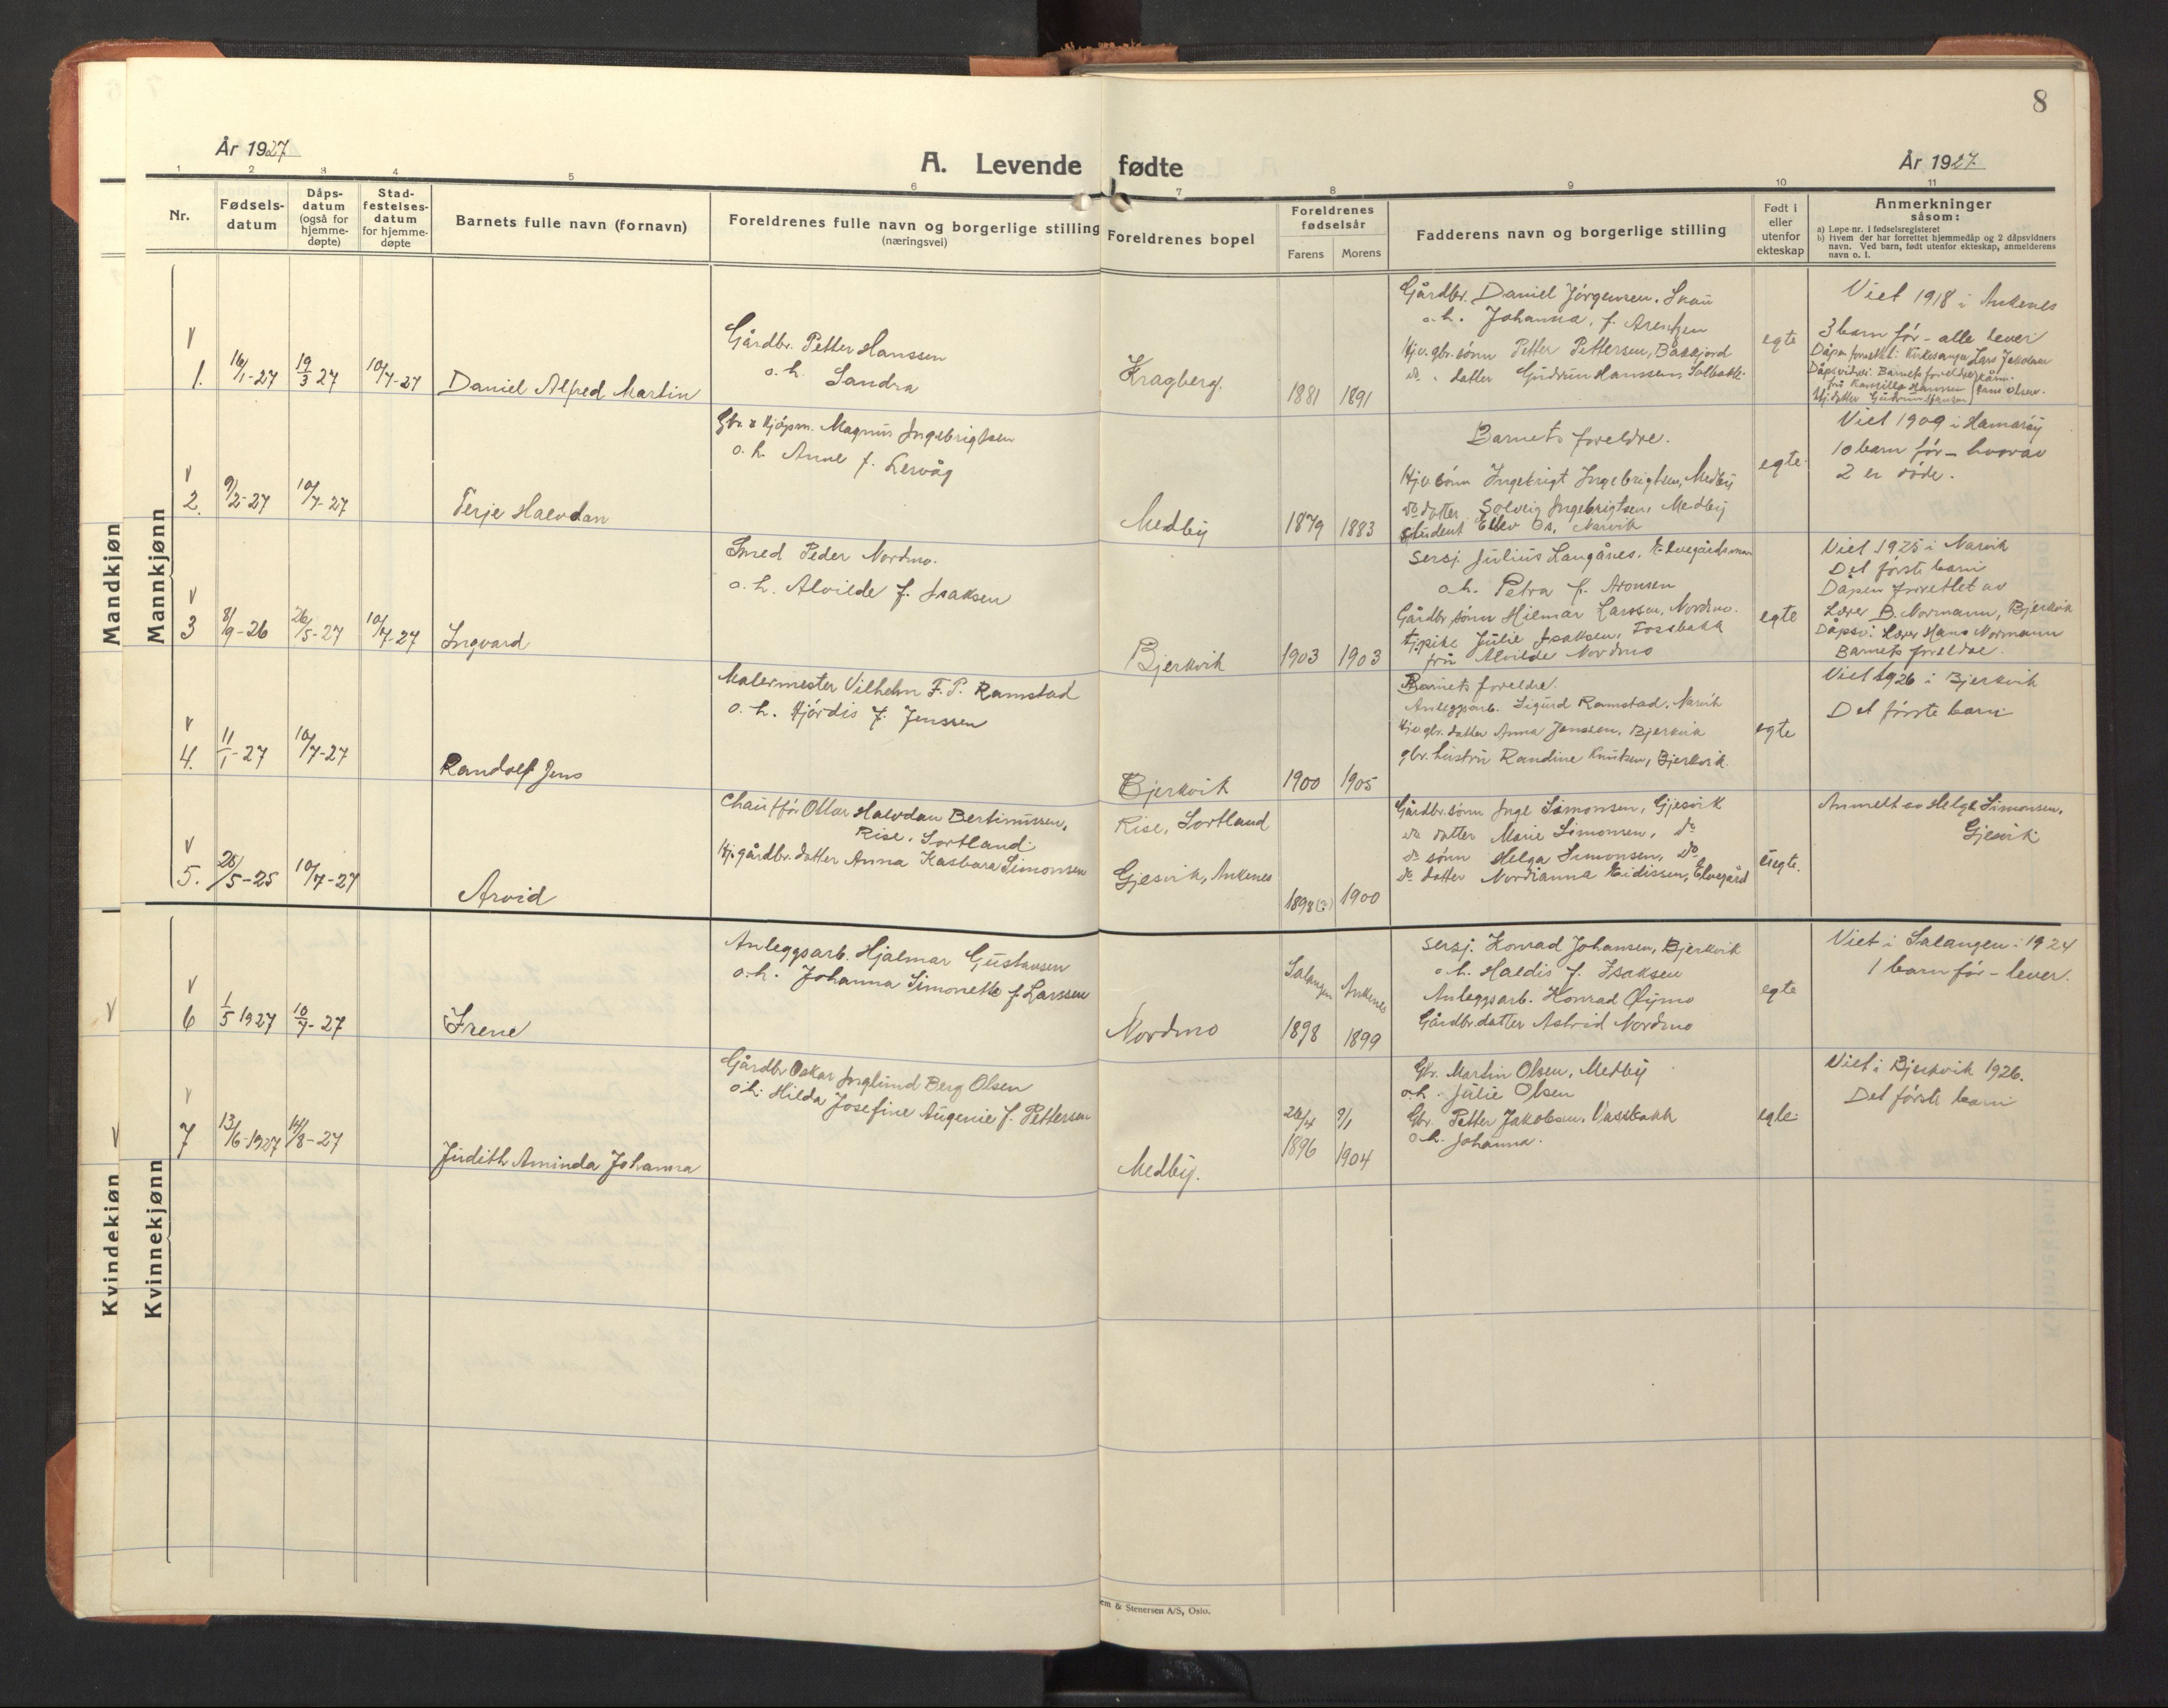 8
År 1927
A. Levende fødte
År 1927
1 2 3 4 5 6 7 8 9 10 11
Nr.
Fødsels-
datum
Dåps-
datum
(også for
hjemme-
døpte)
Stad-
festelses-
datum
for hjemme-
døpte
Barnets fulle navn (fornavn)
Foreldrenes fulle navn og borgerlige stilling
(næringsvei)
Foreldrenes bopel
Foreldrenes
fødselsår
Farens Morens
Fadderens navn og borgerlige stilling
Født i
eller
utenfor
ekteskap
Anmerkninger
såsom:
a) Løpe-nr. i fødselsregisteret
b) Hvem der har forrettet hjemmedåp og 2 dåpsvidners
navn. Ved barn, født utenfor ekteskap, anmelderens
navn o. l.
Mandkjøn
Mannkjønn
V
1. 16/1-27 19/3 27 10/7-27
Daniel Alfred Martin
Gårdbr. Petter Hanssen
o.h. Sandra
Kragberg.
1881 1891
Gårdbr. Daniel Jørgensen, Skau
o.h. Johanna, f. Arentzen
Hjv. gbr. sønn Petter Pettersen,
do. datter Gudrun Hanssen,
egte
Viet 1918 i Ankenes
3 barn før - alle lever
Dåpen forrettet: Kirkesanger Lars Jakobsen
Dåpsvidner: Barnets foreldre
V
2. 9/2-27 10/7-27
Terje Halvdan
Gbr. & Kjøpm. Magnus Ingebrigtsen
o.h. Anne f. Lervåg
Medby
1879 1883
Barnets foreldre.
Hjv. sønn Ingebrigt Ingebrigtsen, Medby
do datter Solveig Ingebrigtsen, Medby
student Os, Narvik
egte
Viet 1909 i Hamarøy
10 barn før - hvorav
2 er døde.
V
3 8/9-26 26/5-27 10/7-27
Ingvard
Smed Peder Nordmo.
o.h. Alvilde f. Isaksen
Bjerkvik
1903 1903
Sersj. Julius Langånes, Elvegårdsmoen
o.h. Petra f. Aronsen
Gårdbr. sønn Hilmar Larssen, Nordmo.
Tj.pike Julie Isaksen, Fossbakk
fru Alvilde Nordmo
egte
Viet 1925 i Narvik
Det første barn
Dåpen forrettet av
Lærer B. Normann, Bjerkvik
Dåpsv: Lærer Hans Normann
Barnets foreldre.
V
4. 11/1-27 10/7-27
Randolf Jens
Malermester Vilhelm F. P. Ramstad
o.h. Hjørdis f. Jenssen
Bjerkvik
1900 1905
Barnets foreldre.
Anleggsarb. Sigurd Ramstad, Narvik
Hjv. gbr. datter Anna Jenssen, Bjerkvik
gbr. hustru Randine Knutsen, Bjerkvik.
egte
Viet 1926 i Bjerkvik
Det første barn
V
5. 28/5-25 10/7-27
Arvid
Chauffør Ottar Halvdan Bertinussen,
Rise, Sortland.
Hj. gårdbr. datter Anna Kasbara Simonsen
Rise, Sortland
Gjesvik, Ankenes
1898(?) 1900
Gårdbr. sønn Inge Simonsen, Gjesvik
do datter Marie Simonsen, do
do sønn Helge Simonsen, do
do datter Nordianna Eidissen, Elvegård
uegte.
Anmelt av Helge Simonsen,
Gjesvik
Kvindekjøn
Kvinnekjønn
V
V
6 1/5 1927 10/7-27
Irene
Anleggsarb. Hjalmar Gustavsen
o.h. Johanna Simonette f. Larssen
Nordmo
Salangen Ankenes
1898 1899
Sersj. Konrad Johansen, Bjerkvik
o.h. Haldis f. Isaksen
Anleggsarb. Konrad Øymo
Gårdbr. datter Astrid Nordmo
egte
Viet i Salangen i 1924
1 barn før - lever.
V
V
7 13/6-1927 14/8-27
Judith Aminda Johanna
Gårdbr Oskar Inglund Berg Olsen
o.h. Hilda Josefine Augenie f. Pettersen
Medby.
26/4 9/1
1896 1904
Gbr. Martin Olsen, Medby
o.h. Julie Olsen
Gbr. Petter Jakobsen, Vassbakk
o.h. Johanna.
egte
Viet i Bjerkvik 1926.
Det første barn
em & Stenersen A/S, Oslo.